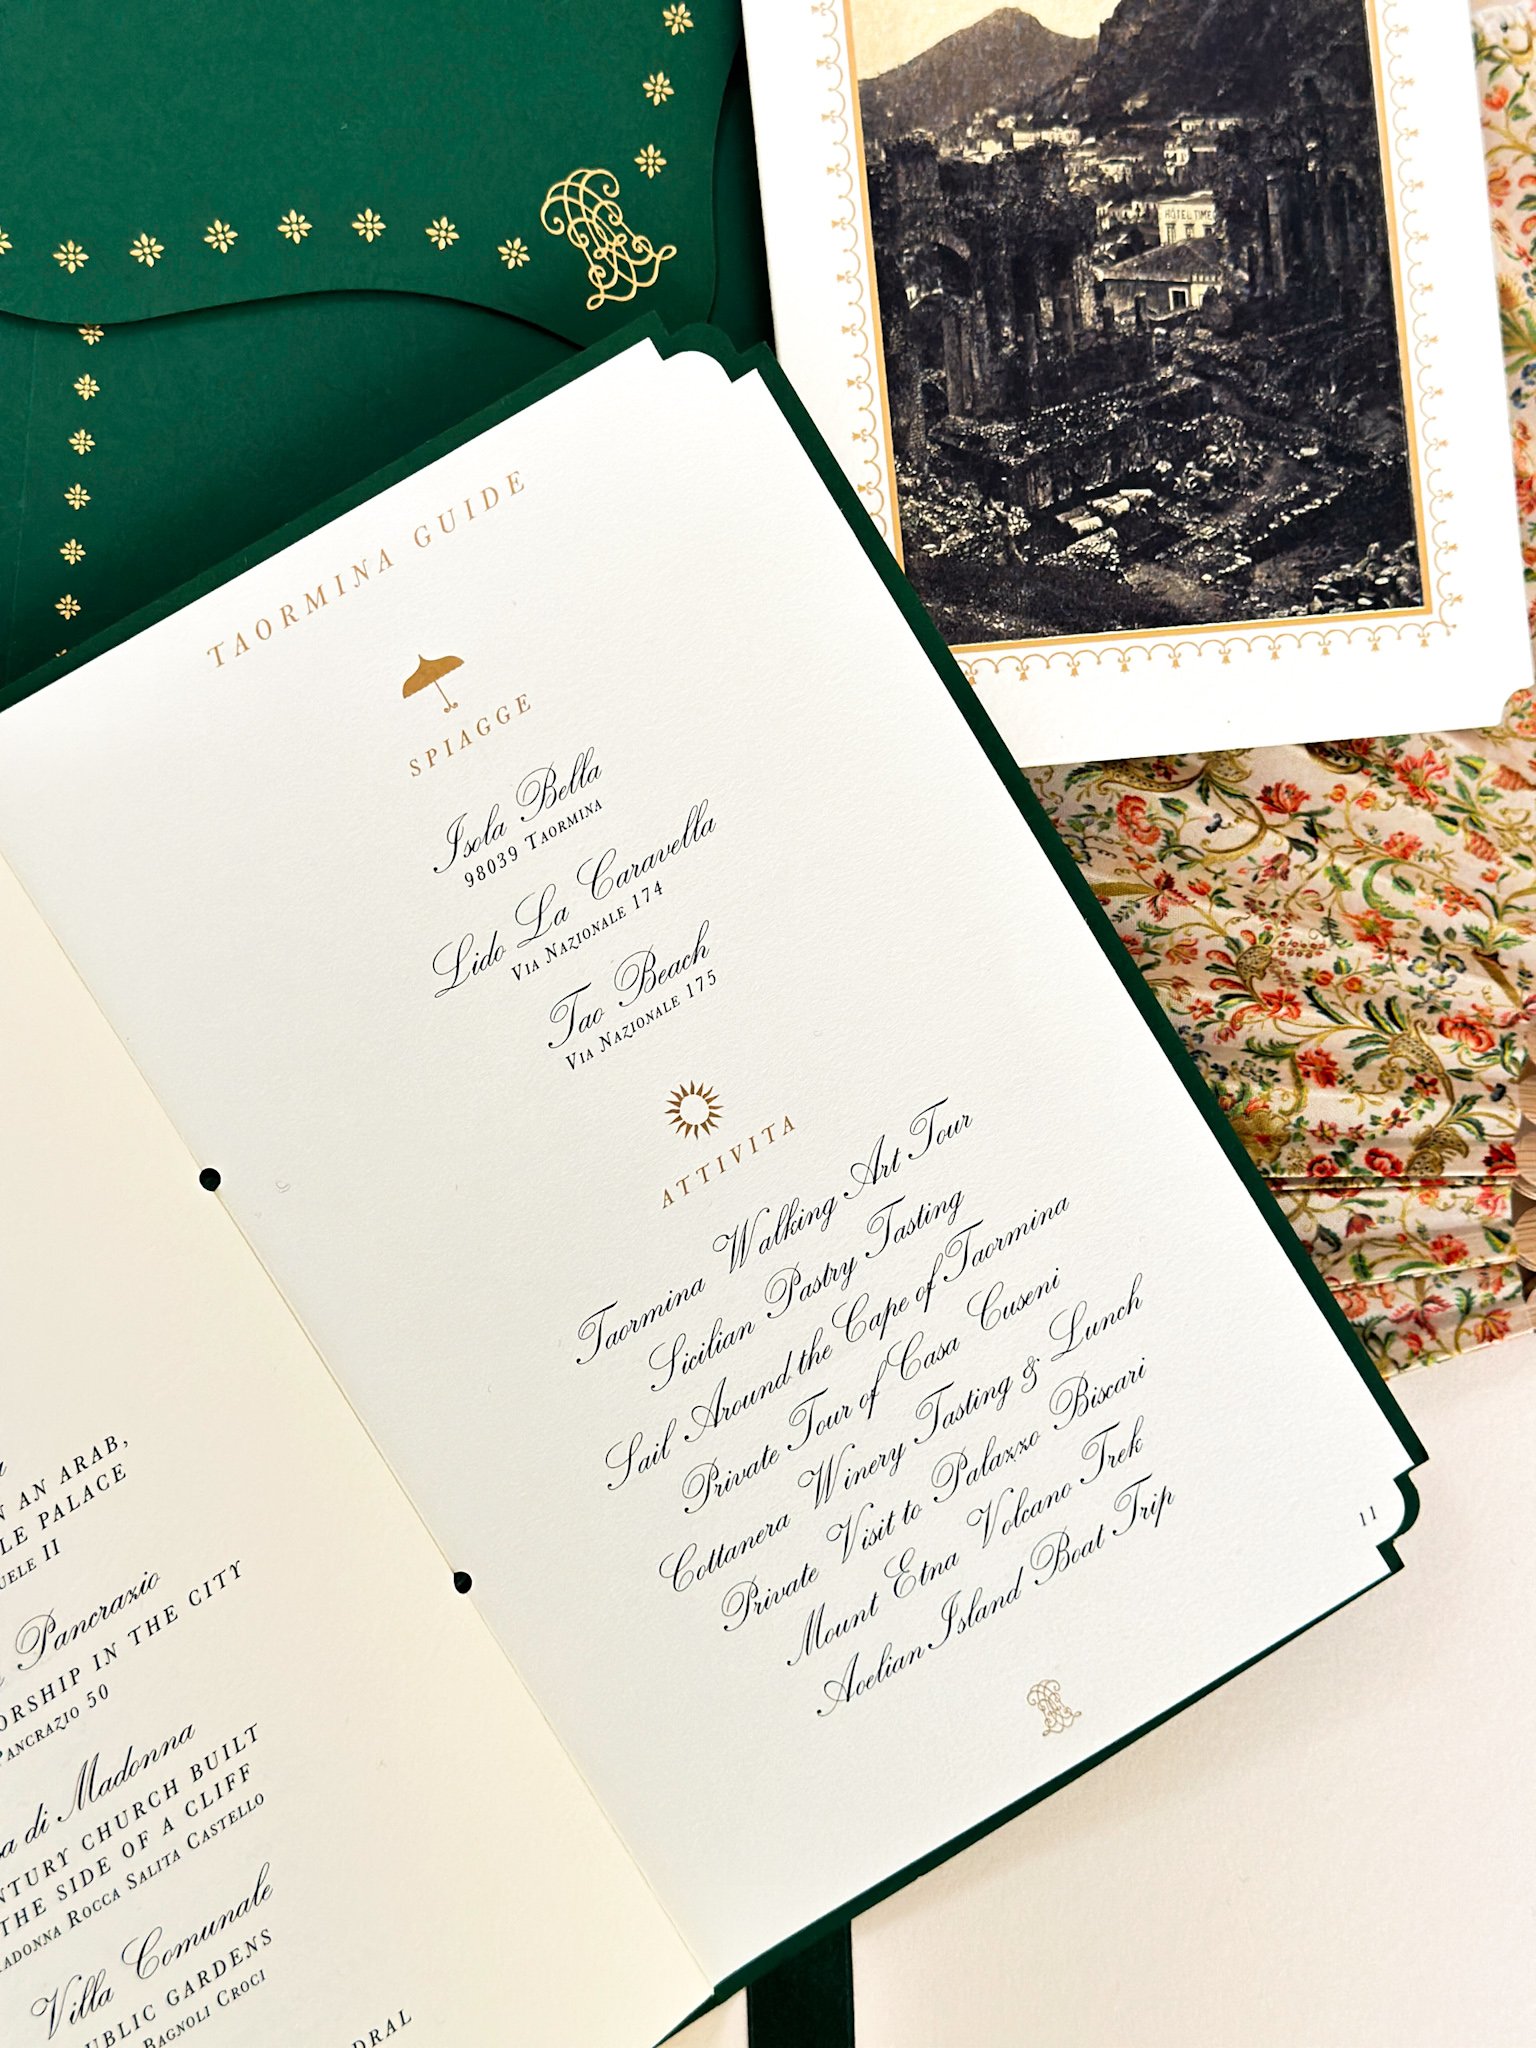 HÔTEL TIME
TAORMINA GUIDE
SPIAGGE
Isola Bella
98039 TAORMINA
Lido La Caravella
VIA NAZIONALE 174
Tao Beach
VIA NAZIONALE 175
ATTIVITA
Taormina Walking Art Tour
Sicilian Pastry Tasting
Sail Around the Cape of Taormina
Private Tour of Casa Cuseni
Cottanera Winery Tasting & Lunch
Private Visit to Palazzo Biscari
Mount Etna Volcano Trek
Aoelian Island Boat Trip
11
AN ARAB,
PALACE
II
Pancrazio
IN THE CITY
PANCRAZIO 50
di Madonna
CHURCH BUILT
THE SIDE OF A CLIFF
ROCCA SALITA CASTELLO
Villa Comunale
GARDENS
BAGNOLI CROCI